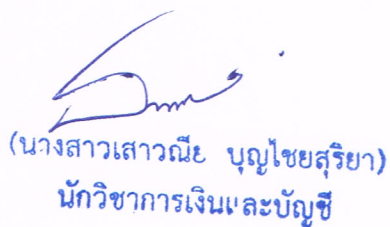 (นางสาวเสาวณีย บุญไชยสุริยา)
นักวิชาการเงินและบัญชี